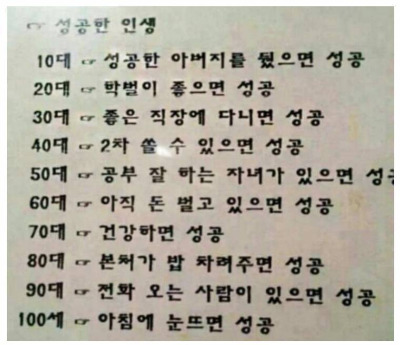 ☞ 성공한 인생
10대 ☞ 성공한 아버지를 뒀으면 성공
20대 ☞ 학벌이 좋으면 성공
30대 ☞ 좋은 직장에 다니면 성공
40대 ☞ 2차 쏠 수 있으면 성공
50대 ☞ 공부 잘 하는 자녀가 있으면 성공
60대 ☞ 아직 돈 벌고 있으면 성공
70대 ☞ 건강하면 성공
80대 ☞ 본처가 밥 차려주면 성공
90대 ☞ 전화 오는 사람이 있으면 성공
100세 ☞ 아침에 눈뜨면 성공